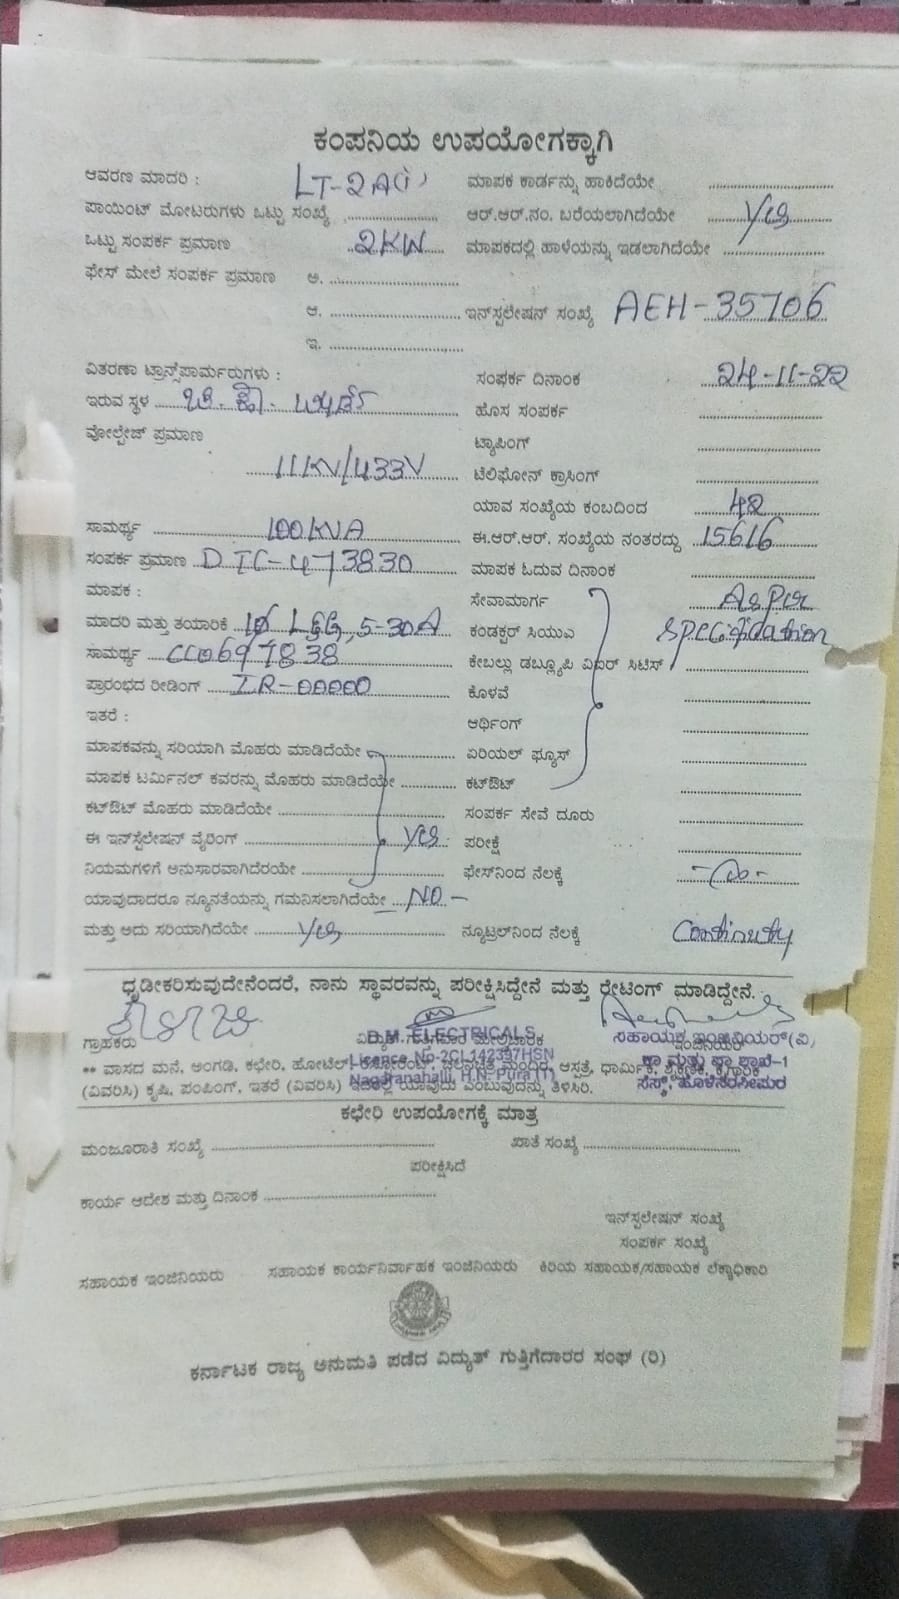 ಕಂಪನಿಯ ಉಪಯೋಗಕ್ಕಾಗಿ
ಆವರಣ ಮಾದರಿ : LT-2A(i) ಮಾಪಕ ಕಾರ್ಡನ್ನು ಹಾಕಿದೆಯೇ
ಪಾಯಿಂಟ್ ಮೋಟರುಗಳು ಒಟ್ಟು ಸಂಖ್ಯೆ ಆರ್.ಆರ್.ನಂ. ಬರೆಯಲಾಗಿದೆಯೇ yes
ಒಟ್ಟು ಸಂಪರ್ಕ ಪ್ರಮಾಣ 2KW ಮಾಪಕದಲ್ಲಿ ಹಾಳೆಯನ್ನು ಇಡಲಾಗಿದೆಯೇ
ಫೇಸ್ ಮೇಲೆ ಸಂಪರ್ಕ ಪ್ರಮಾಣ ಅ.
ಆ. ಇನ್‌ಸ್ಟಲೇಷನ್ ಸಂಖ್ಯೆ AEH-35706
ಇ.
ವಿತರಣಾ ಟ್ರಾನ್ಸ್‌ಪಾರ್ಮರುಗಳು : ಸಂಪರ್ಕ ದಿನಾಂಕ 24-11-22
ಇರುವ ಸ್ಥಳ ಹೊಸ ಸಂಪರ್ಕ
ವೋಲ್ಟೇಜ್ ಪ್ರಮಾಣ ಟ್ಯಾಪಿಂಗ್
11KV/433V ಟೆಲಿಫೋನ್ ಕ್ರಾಸಿಂಗ್
ಯಾವ ಸಂಖ್ಯೆಯ ಕಂಬದಿಂದ 42
ಸಾಮರ್ಥ್ಯ 100KVA ಈ.ಆರ್.ಆರ್. ಸಂಖ್ಯೆಯ ನಂತರದ್ದು 15616
ಸಂಪರ್ಕ ಪ್ರಮಾಣ DTC-473830 ಮಾಪಕ ಓದುವ ದಿನಾಂಕ
ಮಾಪಕ : ಸೇವಾಮಾರ್ಗ As per
ಮಾದರಿ ಮತ್ತು ತಯಾರಿಕೆ 1Ø L&G, 5-30A ಕಂಡಕ್ಟರ್ ಸಿಯುಎ specification
ಸಾಮರ್ಥ್ಯ CC0697838 ಕೇಬಲ್ಲು ಡಬ್ಲ್ಯೂಪಿ ವಿಐಆರ್ ಸಿಟಿಸ್
ಪ್ರಾರಂಭದ ರೀಡಿಂಗ್ IR-00000 ಕೊಳವೆ
ಇತರೆ : ಆರ್ಥಿಂಗ್
ಮಾಪಕವನ್ನು ಸರಿಯಾಗಿ ಮೊಹರು ಮಾಡಿದೆಯೇ ಏರಿಯಲ್ ಫ್ಯೂಸ್
ಮಾಪಕ ಟರ್ಮಿನಲ್ ಕವರನ್ನು ಮೊಹರು ಮಾಡಿದೆಯೇ ಕಟ್‌ಔಟ್
ಕಟ್‌ಔಟ್ ಮೊಹರು ಮಾಡಿದೆಯೇ ಸಂಪರ್ಕ ಸೇವೆ ದೂರು
ಈ ಇನ್‌ಸ್ಟಲೇಷನ್ ವೈರಿಂಗ್ yes ಪರೀಕ್ಷೆ
ನಿಯಮಗಳಿಗೆ ಅನುಸಾರವಾಗಿದೆರಯೇ ಫೇಸ್‌ನಿಂದ ನೆಲಕ್ಕೆ
ಯಾವುದಾದರೂ ನ್ಯೂನತೆಯನ್ನು ಗಮನಿಸಲಾಗಿದೆಯೇ NO -
ಮತ್ತು ಅದು ಸರಿಯಾಗಿದೆಯೇ yes ನ್ಯೂಟ್ರಲ್‌ನಿಂದ ನೆಲಕ್ಕೆ Continuty
ಧೃಡೀಕರಿಸುವುದೇನೆಂದರೆ, ನಾನು ಸ್ಥಾವರವನ್ನು ಪರೀಕ್ಷಿಸಿದ್ದೇನೆ ಮತ್ತು ರೇಟಿಂಗ್ ಮಾಡಿದ್ದೇನೆ.
ಗ್ರಾಹಕರು ವಿದ್ಯುತ್ ಗುತ್ತಿಗೆದಾರ ಮೇಲ್ವಿಚಾರಕ ಇಂಜಿನಿಯರ್
D.M. ELECTRICALS
Licence No-2CL142397HSN
Nagaranahalli, H.N. Pura (T)
ಸಹಾಯಕ ಇಂಜಿನಿಯರ್(ವಿ)
ಕಾ ಮತ್ತು ಪಾ ಶಾಖೆ-1
ಸೆಸ್ಕ್, ಹೊಳೆನರಸೀಪುರ
** ವಾಸದ ಮನೆ, ಅಂಗಡಿ, ಕಛೇರಿ, ಹೋಟೆಲ್-ರೆಸ್ಟೋರೆಂಟ್, ಚಲನಚಿತ್ರ ಮಂದಿರ, ಆಸ್ಪತ್ರೆ, ಧಾರ್ಮಿಕ, ಶೈಕ್ಷಣಿಕ, ಕೈಗಾರಿಕೆ
(ವಿವರಿಸಿ) ಕೃಷಿ, ಪಂಪಿಂಗ್, ಇತರೆ (ವಿವರಿಸಿ) ಇದರಲ್ಲಿ ಯಾವುದು ಎಂಬುವುದನ್ನು ತಿಳಿಸಿರಿ.
ಕಛೇರಿ ಉಪಯೋಗಕ್ಕೆ ಮಾತ್ರ
ಮಂಜೂರಾತಿ ಸಂಖ್ಯೆ ಖಾತೆ ಸಂಖ್ಯೆ
ಪರೀಕ್ಷಿಸಿದೆ
ಕಾರ್ಯ ಆದೇಶ ಮತ್ತು ದಿನಾಂಕ
ಇನ್‌ಸ್ಟಲೇಷನ್ ಸಂಖ್ಯೆ
ಸಂಪರ್ಕ ಸಂಖ್ಯೆ
ಸಹಾಯಕ ಇಂಜಿನಿಯರು ಸಹಾಯಕ ಕಾರ್ಯನಿರ್ವಾಹಕ ಇಂಜಿನಿಯರು ಕಿರಿಯ ಸಹಾಯಕ/ಸಹಾಯಕ ಲೆಕ್ಕಾಧಿಕಾರಿ
ಕರ್ನಾಟಕ ರಾಜ್ಯ ಅನುಮತಿ ಪಡೆದ ವಿದ್ಯುತ್ ಗುತ್ತಿಗೆದಾರರ ಸಂಘ (ರಿ)